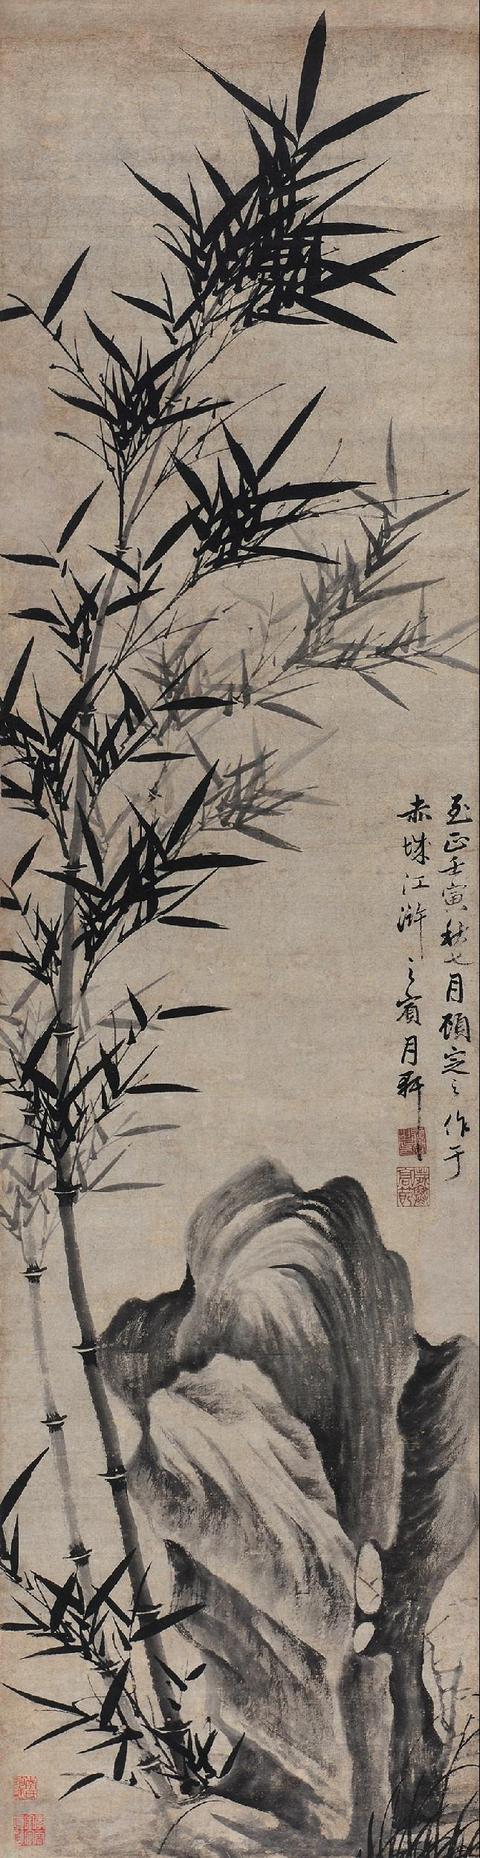 至正壬寅秋七月顧定之作于
赤城江滸之賓月軒